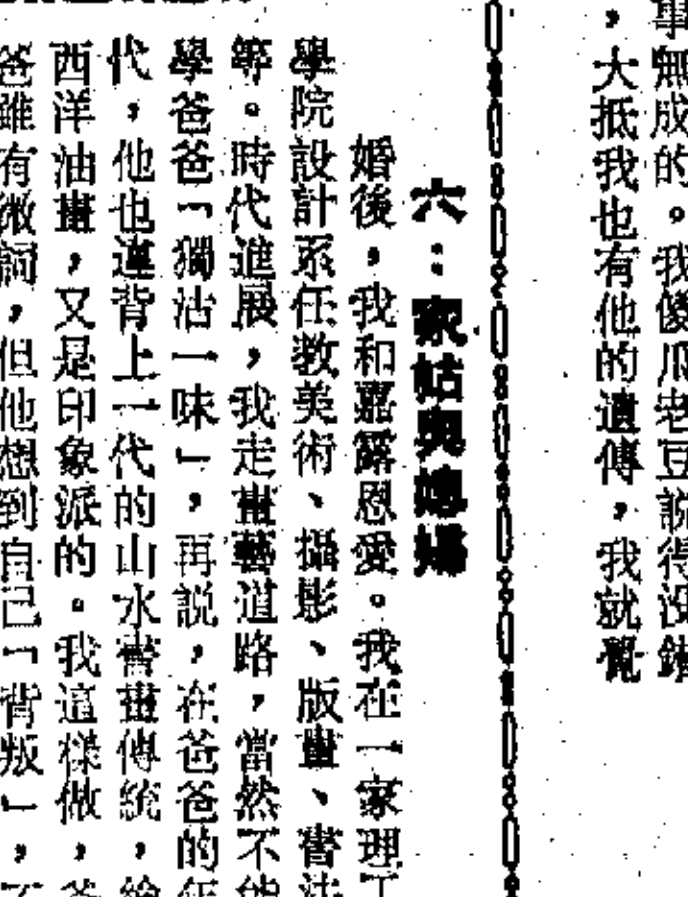 事無成的。我傻瓜老豆說得沒錯
，大抵我也有他的遺傳，我就覺
六：家姑與媳婦
婚後，我和嘉露恩愛。我在一家理工
學院設計系任教美術、攝影、版畫、書法
等。時代進展，我走畫藝道路，當然不能
學爸爸「獨沽一味」，再説，在爸爸的年
代，他也違背上一代的山水書畫傳統，繪
西洋油畫，又是印象派的。我這樣做，爸
爸雖有微詞，但他想到自己「背叛」，不